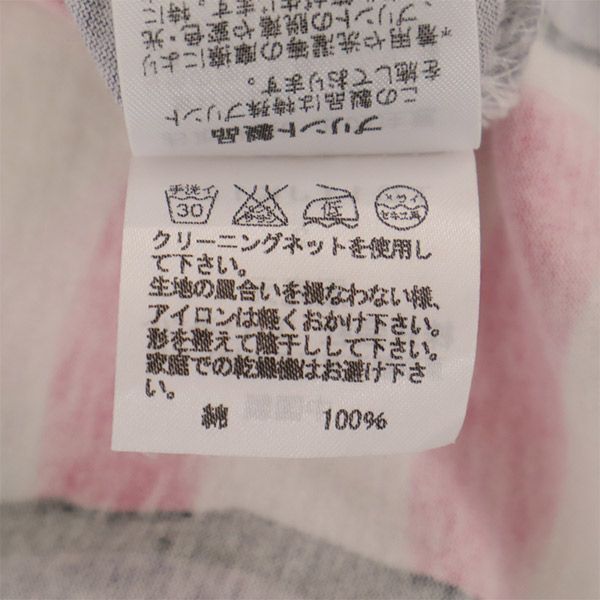 プリント製品
この製品は特殊プリント
を施しております。
*着用や洗濯等の摩擦により
手洗イ
30
低
ドライ
セキユ系
クリーニングネットを使用し
て下さい。
生地の風合いを損なわない様、
アイロンは軽くおかけ下さい。
形を整えて陰干しして下さい。
家庭での乾燥機はお避け下さ
い。
綿 100%